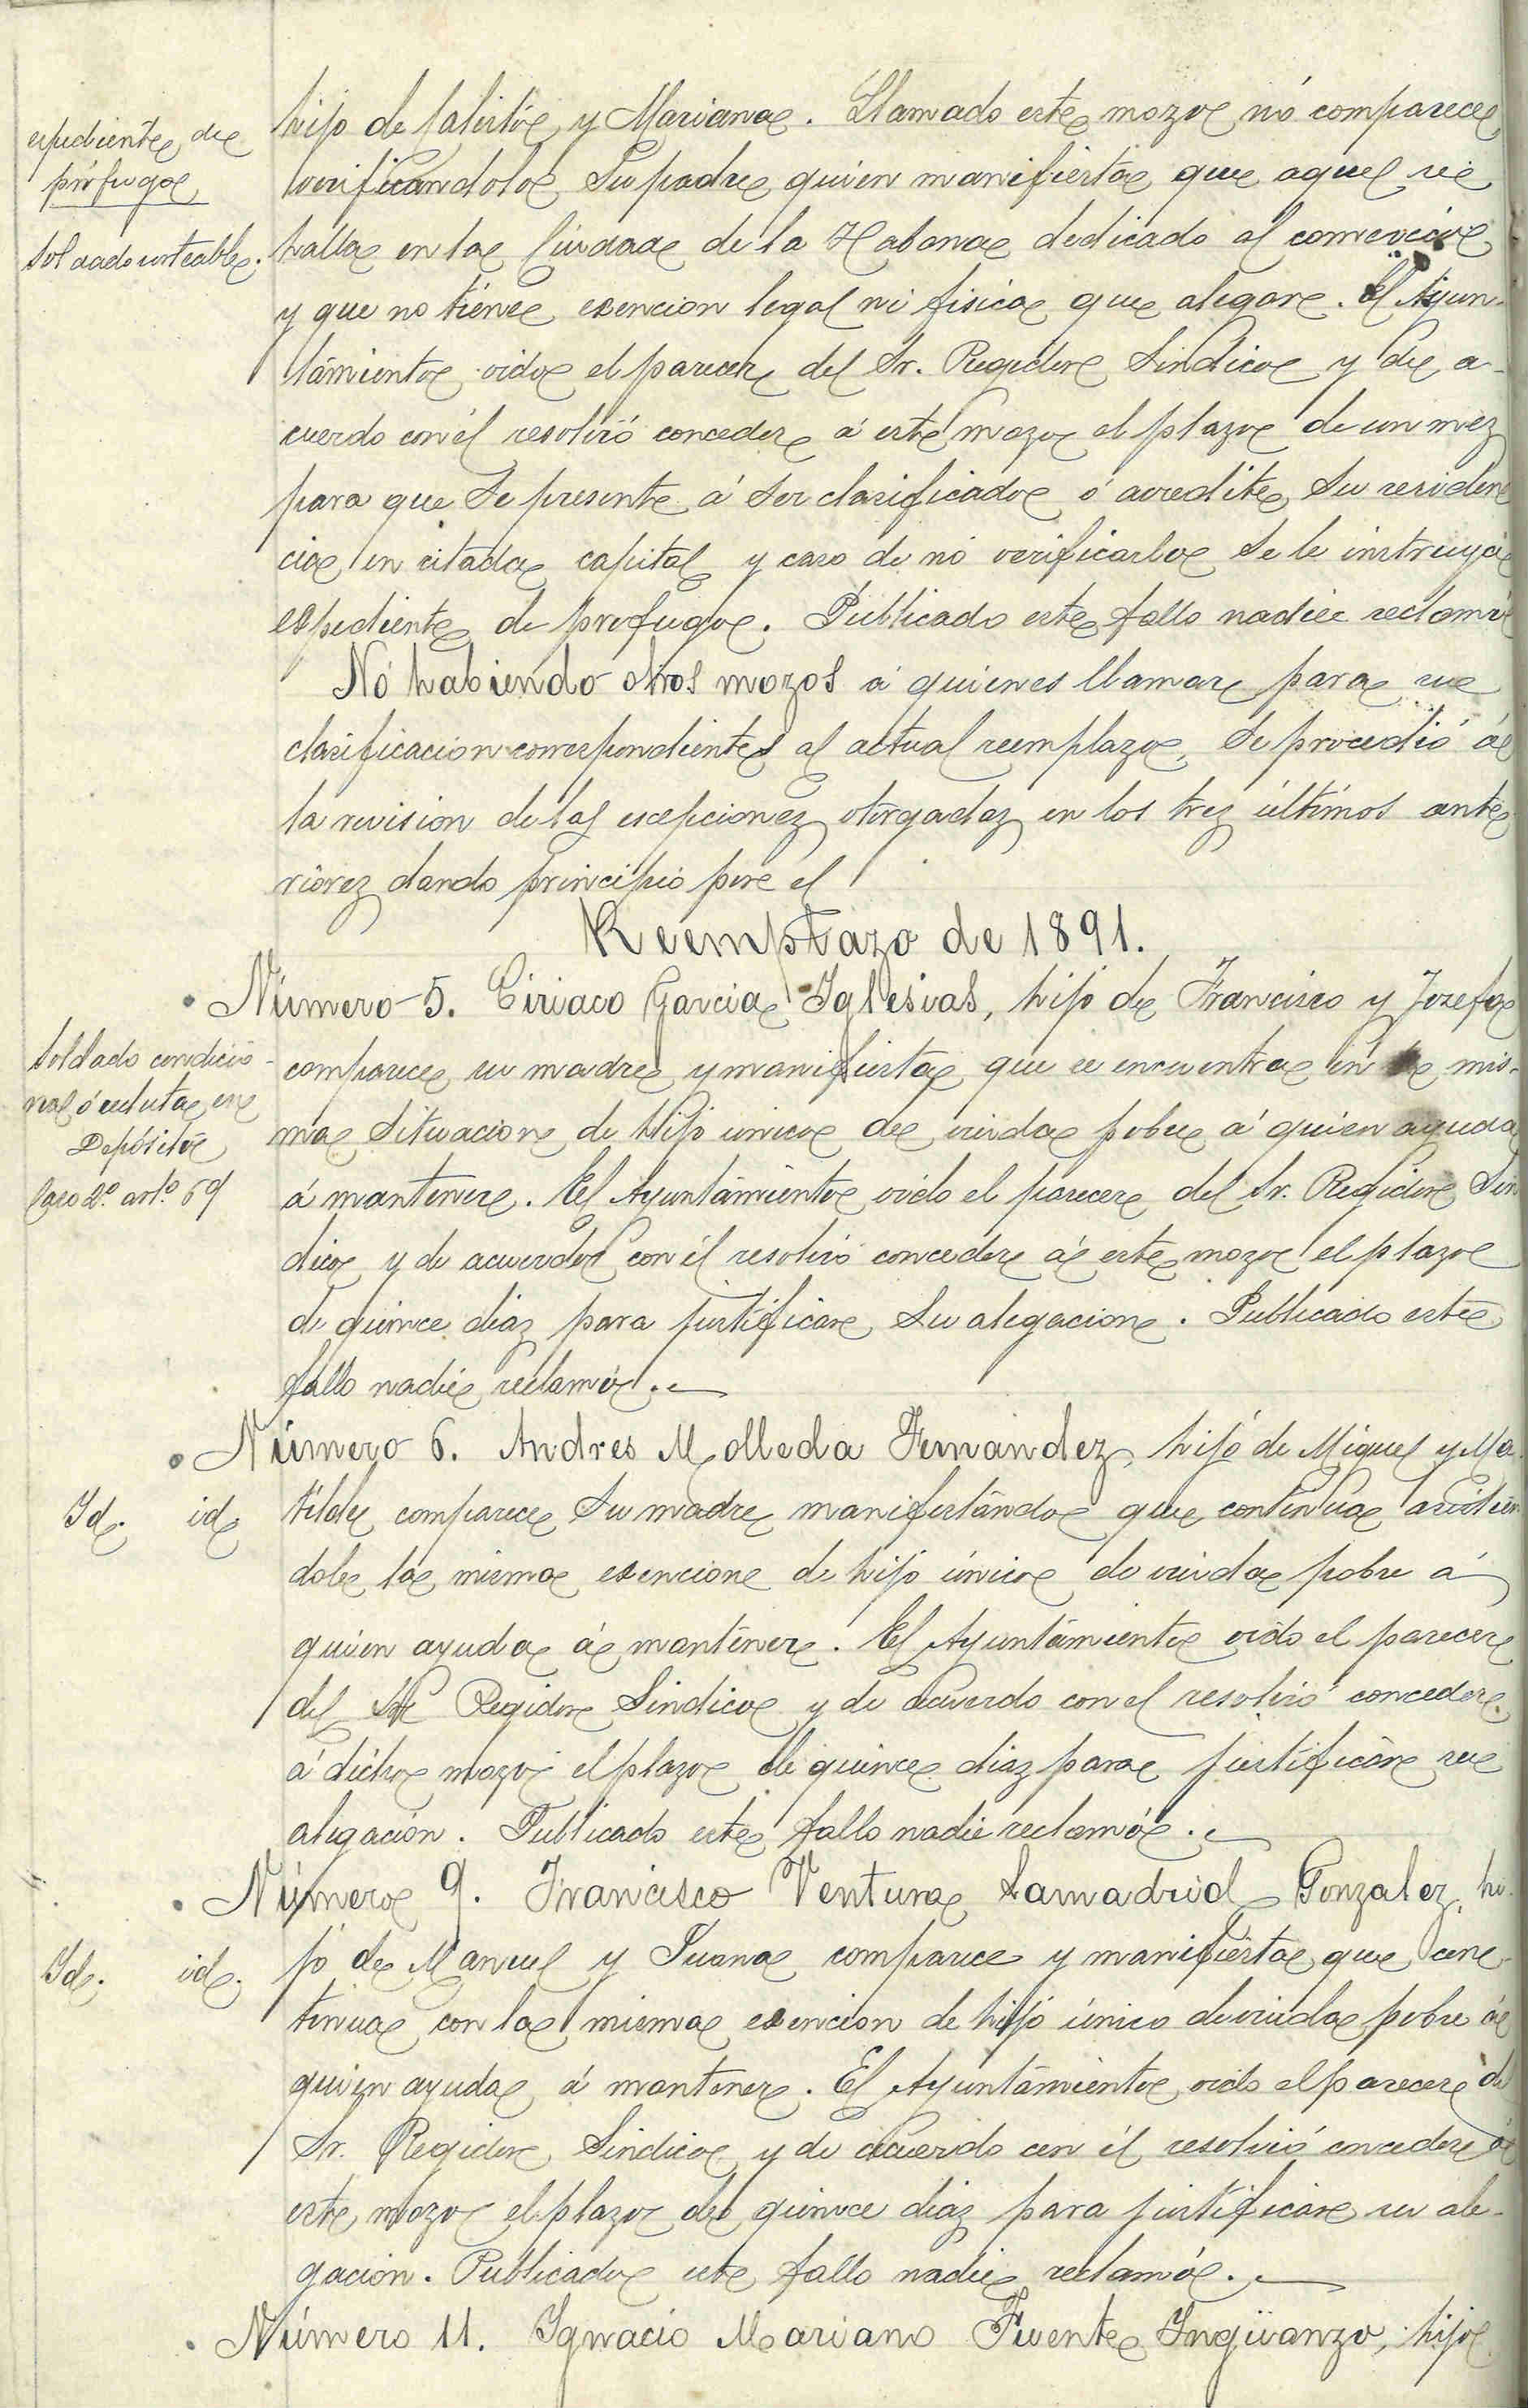 hijo de Calisto y Mariana. Llamado este mozo nó comparece
verificandolo su padre quien manifiesta que aquel se
halla en la Ciudad de la Habana dedicado al comercio
y que no tiene exencion legal ni fisica que alegar. El Ayun-
tamiento oido el parecer del Sr. Regidor Sindico y de a-
cuerdo con él resolvió conceder á este mozo el plazo de un mez
para que se presente á ser clasificado ó acredite su residen
cia en citada capital y caso de nó verificarlo se le instruya
expediente de profugo. Publicado este fallo nadie reclamó
espediente de
prófugo
Soldado sorteable.
Nó habiendo otros mozos á quienes llamar para su
clasificacion correspondiente al actual reemplazo, se procedió á
la revision de las escepcionez otorgadaz en los trez últimos ante
riorez dando principio por el
Reemplazo de 1891.
Número 5. Ciriaco Garcia Iglesias, hijo de Francisco y Josefa
comparece su madre y manifiesta que se encuentra en la mis-
ma situacion de hijo unico de viuda pobre á quien ayuda
á mantener. El Ayuntamiento oido el parecer del Sr. Regidor Sin
dico y de acuerdo con él resolvió conceder á este mozo el plazo
de quince diaz para justificar su alegacion. Publicado este
fallo nadie reclamó.
Soldado condicio-
nal ó recluta en
Depósito
Caso 2º. artº. 69
Número 6. Andres Molleda Fernandez, hijo de Miguel y Ma
tilde comparece su madre manifestando que continua asistien
dole la misma exencion de hijo único de viuda pobre á
quien ayuda á mantener. El Ayuntamiento oido el parecer
del Sr. Regidor Sindico y de acuerdo con el resolvió conceder
á dicho mozo el plazo de quince diaz para justificar su
alegacion. Publicado este fallo nadie reclamó.
Id. id.
Número 9. Francisco Ventura Lamadrid Gonzalez, hi-
jo de Manuel y Juana comparece y manifiesta que con-
tinua con la misma exencion de hijo único de viuda pobre á
quien ayuda á mantener. El Ayuntamiento oido el parecer del
Sr. Regidor Sindico y de acuerdo con él resolvió conceder á
este mozo el plazo de quince diaz para justificar su ale-
gacion. Publicado este fallo nadie reclamó.
Id. id.
Número 11. Ignacio Mariano Fuente Ingüanzo, hijo